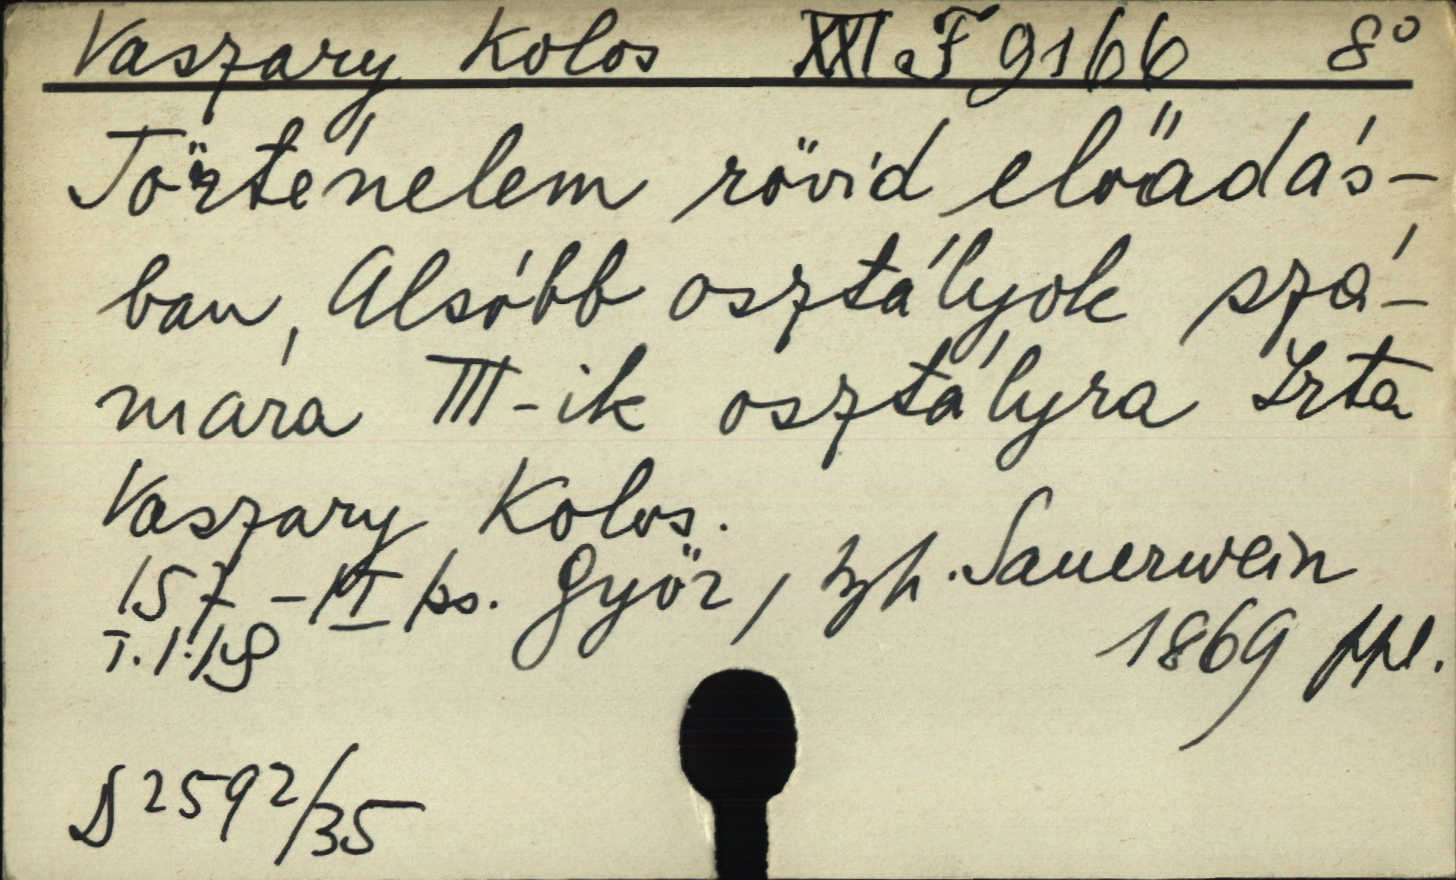 Vaszary Kolos XXI. F 9166 8°
Történelem rövid előadás-
ban, Alsóbb osztályok szá-
mára III-ik osztályra Irta
Vaszary Kolos.
157 Győr, Sauerwein
1869 ppl.
D 2592/35